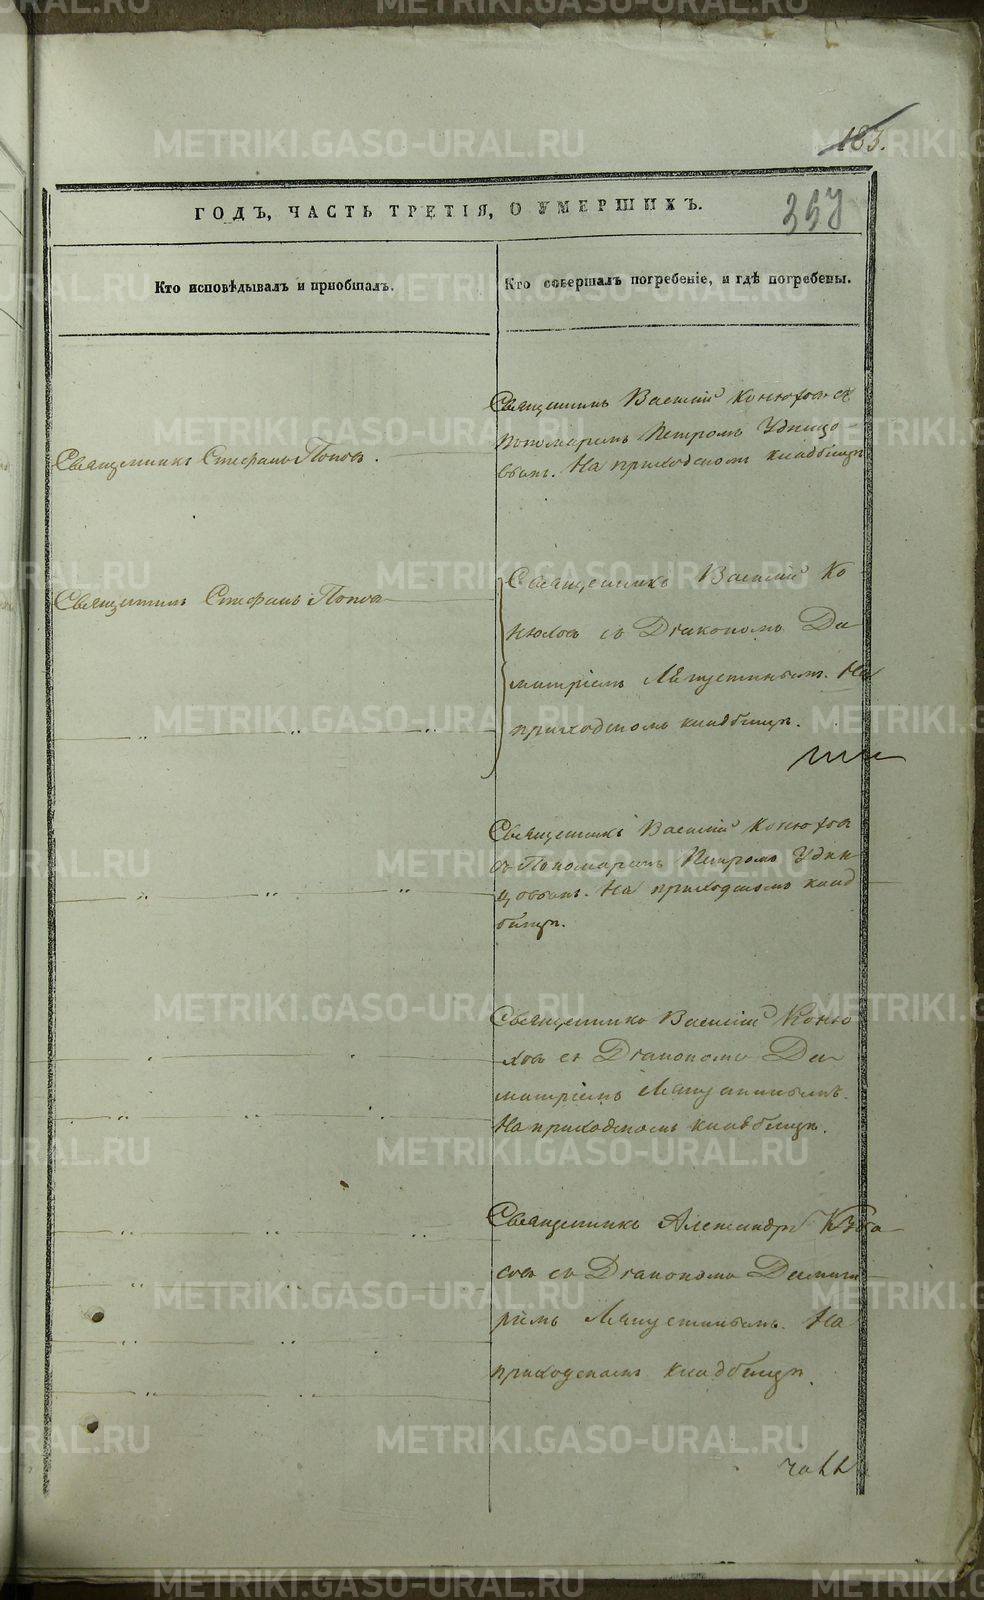 METRIKI.GASO-URAL.RU
183.
ГОДЪ, ЧАСТЬ ТРЕТІЯ, О УМЕРШИХЪ.
357
Кто исповѣдывалъ и пріобщалъ.
Кто совершалъ погребеніе, и гдѣ погребены.
Священникъ Стефанъ Поповъ.
Священникъ Василій Конюховъ съ
Пономаремъ Петромъ Удинцо
вымъ. На приходскомъ кладбищѣ
Священникъ Стефанъ Поповъ
Священникъ Василій Ко
нюховъ съ Діакономъ Ди
митріемъ Ляпустинымъ. На
приходскомъ кладбищѣ.
Священникъ Василій Конюховъ
съ Пономаремъ Петромъ Удин
цовымъ. На приходскомъ клад
бищѣ.
Священникъ Василій Коню
ховъ съ Діакономъ Ди
митріемъ Ляпустинымъ.
На приходскомъ кладбищѣ.
Священникъ Александръ
съ Діакономъ Димит
ріемъ Ляпустинымъ. На
приходскомъ кладбищѣ.